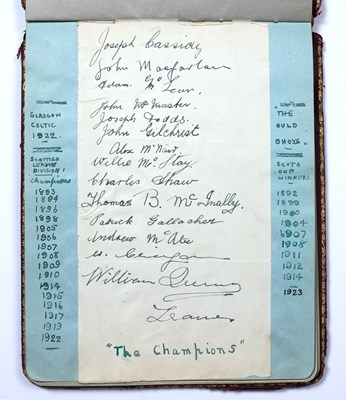 Joseph Cassidy
John Macfarlane
Adam McLean
John McMaster
Joseph Dodds
John Gilchrist
Alex McNair
Willie McStay
Charles Shaw
Thomas B. McInally.
Patrick Gallacher
Andrew McAtee
William
"The Champions"
GLASGOW
CELTIC
1922.
SCOTTISH
LEAGUE
DIVISION 1
Champions
1893
1894
1896
1898
1905
1906
1907
1908
1909
1910
1914
1915
1916
1917
1919
1922
"THE
OULD
BHOYS"
SCOTS
CUP
WINNERS
1892
1899
1900
1904
1907
1908
1911
1912
1914
1923